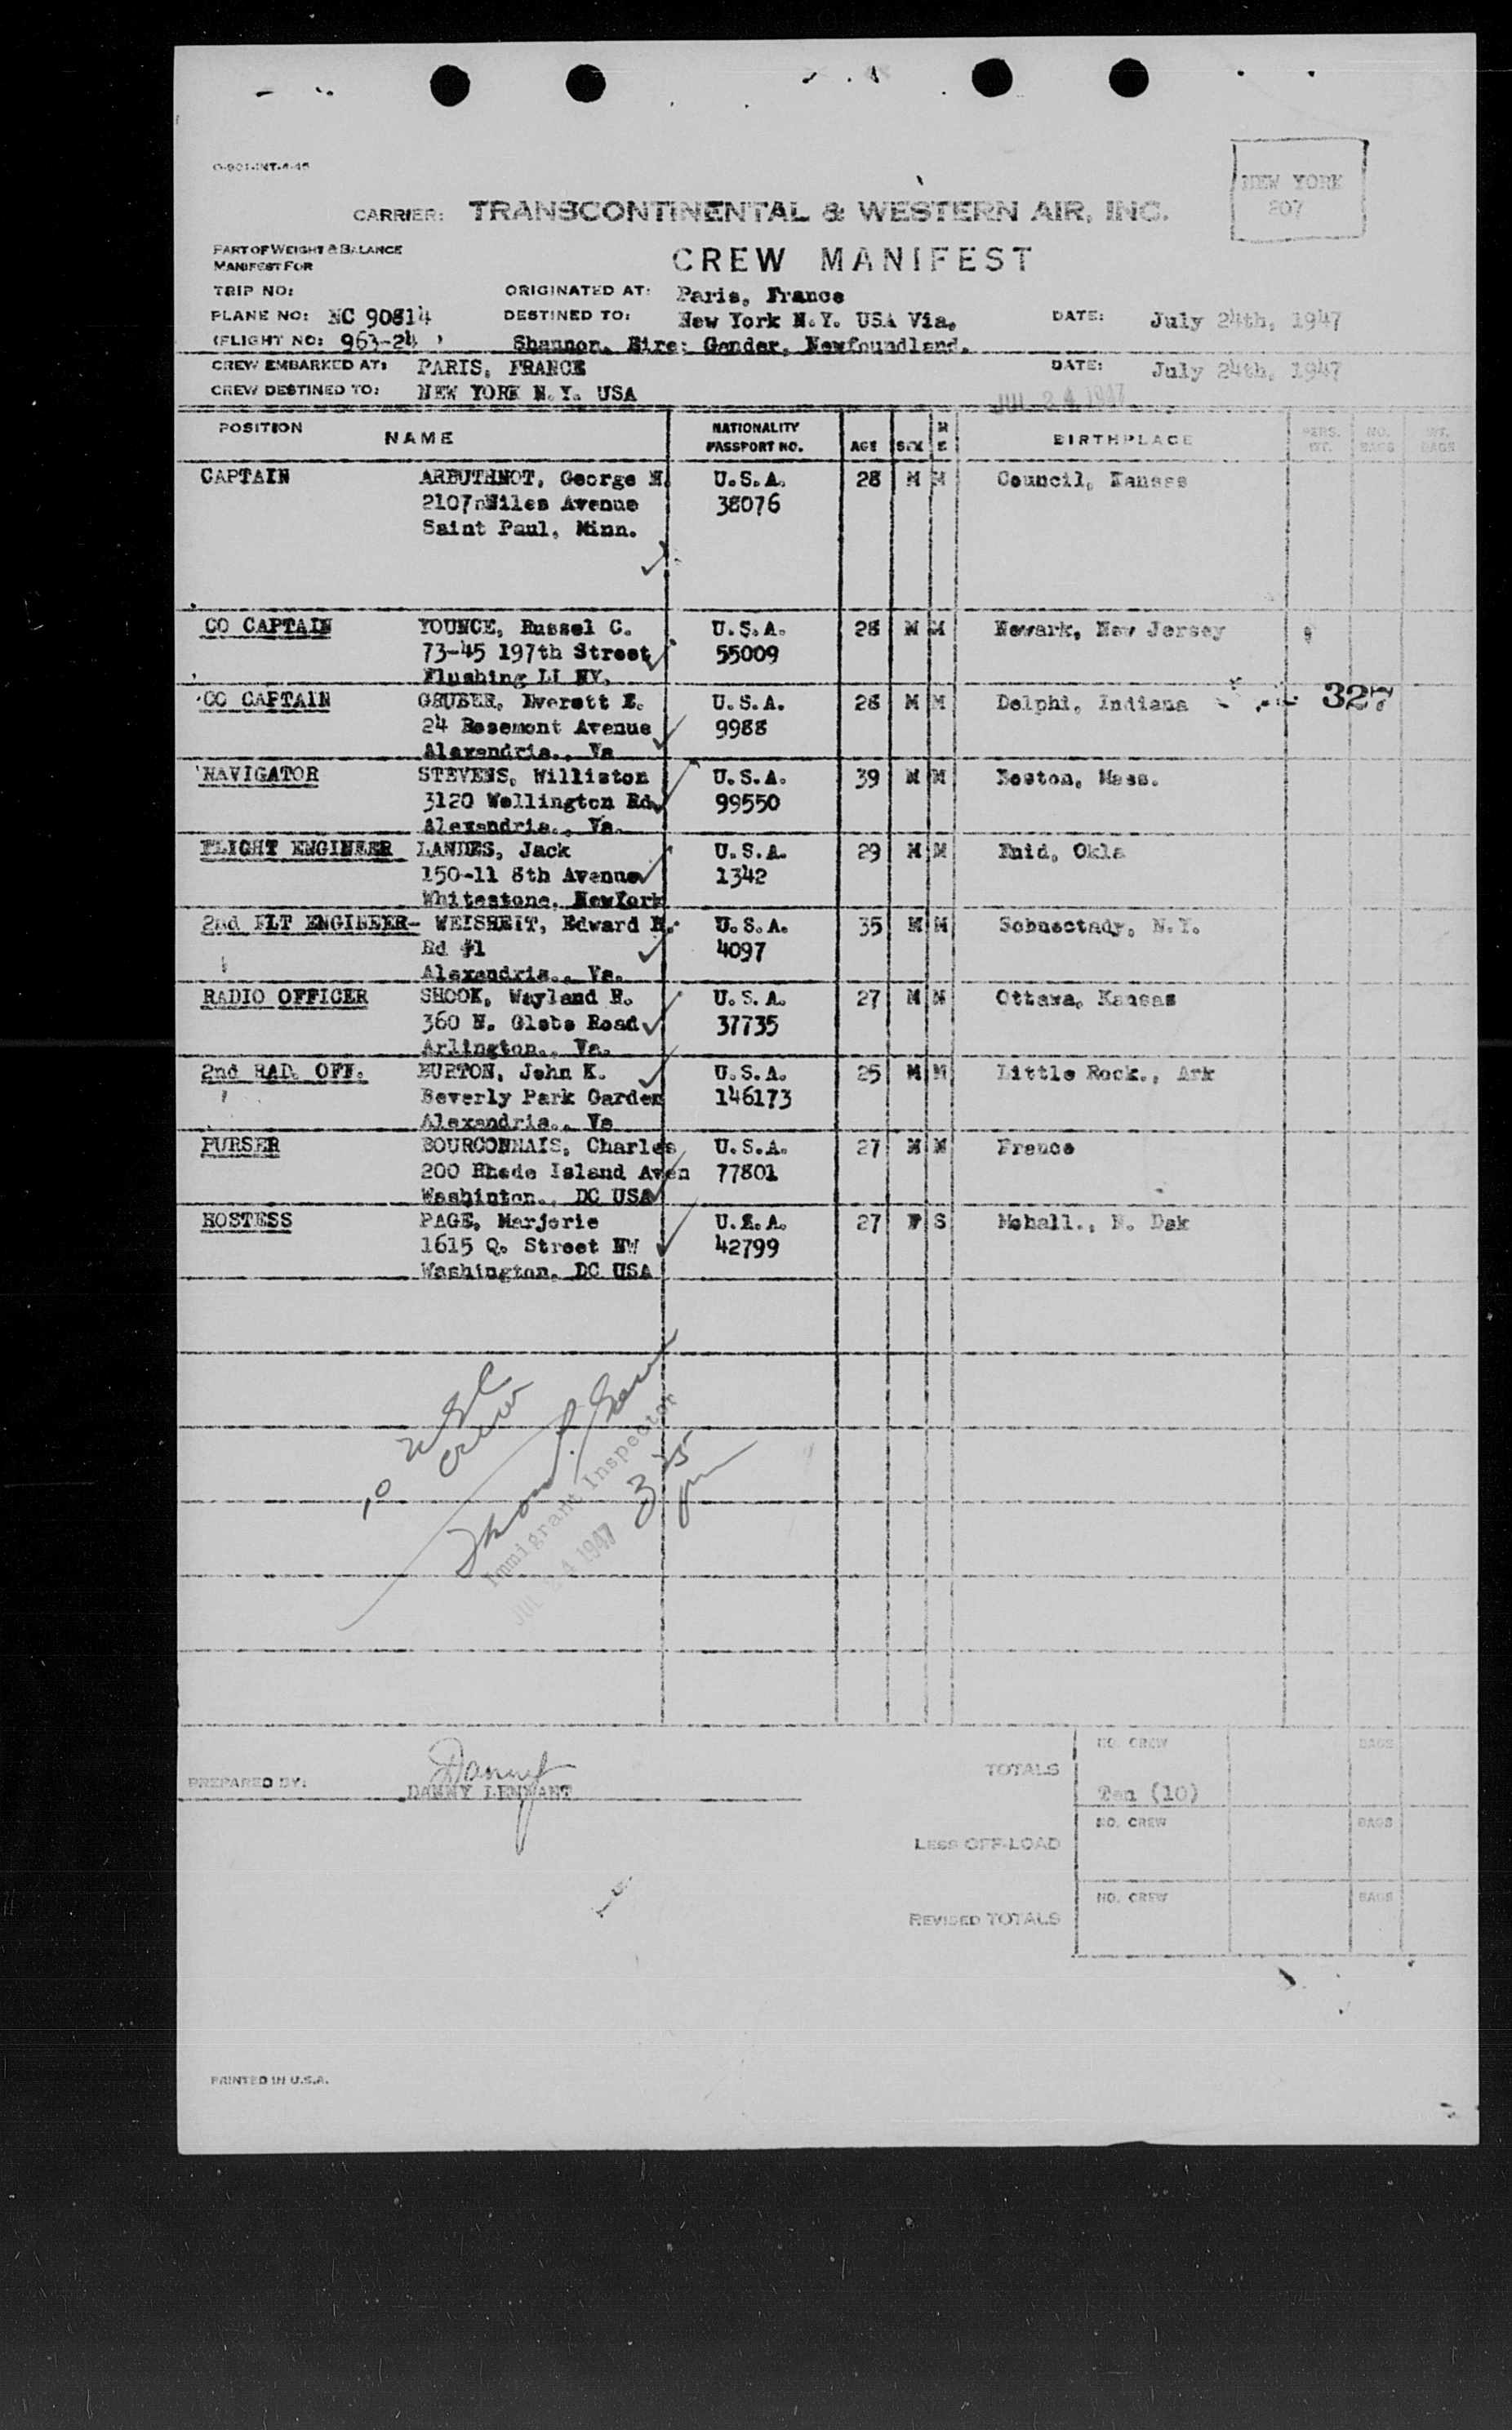 O-901-INT-4-45
NEW YORK
207
CARRIER: TRANSCONTINENTAL & WESTERN AIR, INC.
PART OF WEIGHT & BALANCE
MANIFEST FOR
CREW MANIFEST
TRIP NO: ORIGINATED AT: Paris, France
PLANE NO: NC 90814 DESTINED TO: New York N.Y. USA Via, DATE: July 24th, 1947
(FLIGHT NO: 963-24 Shannon, Eire; Gander, Newfoundland.
CREW EMBARKED AT: PARIS, FRANCE DATE: July 24th, 1947
CREW DESTINED TO: NEW YORK N.Y. USA
JUL 24 1947
POSITION NAME NATIONALITY PASSPORT NO. AGE SEX M E BIRTHPLACE PERS. WT. NO. BAGS WT. BAGS
CAPTAIN ARBUTHNOT, George N. U.S.A. 28 M M Council, Kansas
2107 Niles Avenue 38076
Saint Paul, Minn.
CO CAPTAIN YOUNCE, Russel C. U.S.A. 28 M M Newark, New Jersey
73-45 197th Street 55009
Flushing LI NY.
CO CAPTAIN GRUBER, Everett E. U.S.A. 28 M M Delphi, Indiana 327
24 Rosemont Avenue 9988
Alexandria., Va
NAVIGATOR STEVENS, Williston U.S.A. 39 M M Boston, Mass.
3120 Wellington Rd. 99550
Alexandria., Va.
FLIGHT ENGINEER LANDES, Jack U.S.A. 29 M M Enid, Okla
150-11 8th Avenue 1342
Whitestone, NewYork
2nd FLT ENGINEER- WEISHEIT, Edward H. U.S.A. 35 M M Schnectady, N.Y.
Rd #1 4097
Alexandria., Va.
RADIO OFFICER SHOOK, Wayland H. U.S.A. 27 M M Ottawa, Kansas
360 N. Glebe Road 37735
Arlington., Va.
2nd RAD. OFF. BURTON, John K. U.S.A. 25 M M Little Rock., Ark
Beverly Park Garden 146173
Alexandria., Va
PURSER BOURGONNAIS, Charles U.S.A. 27 M M France
200 Rhode Island Aven 77801
Washinton., DC USA
HOSTESS PAGE, Marjorie U.S.A. 27 F S Mohall., N. Dak
1615 Q. Street NW 42799
Washington, DC USA
10 USC
crew
Immigrant Inspector
JUL 24 1947
3 25
pm
PREPARED BY: DANNY LENNANT
TOTALS NO. CREW BAGS
Ten (10)
LESS OFF-LOAD NO. CREW BAGS
REVISED TOTALS NO. CREW BAGS
PRINTED IN U.S.A.